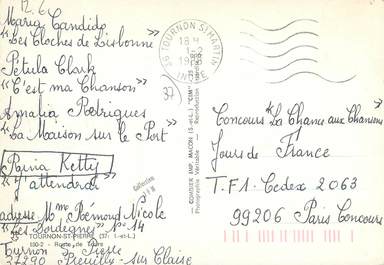 12.6
Maria Candido
"Les Cloches de Lisbonne"
Petula Clark
"C'est ma Chanson"
Amalia Rodrigues
"La Maison sur le Port"
Rina Ketty
"J'attendrai"
adresse Mme Rémond Nicole
"Les Sordegnes" N° 14
37 - TOURNON-ST-PIERRE (37-I.-L.)
150-2 - Route de Tours
Tournon S. Pierre
37290 Preuilly-sur-Claise
36 TOURNON ST MARTIN
18 H
1-2
INDRE
37
COMBIER IMP. MACON (S.-et-L.) "CIM"
Photographie Véritable - Reproduction
Collection
Concours "La Chance aux Chansons"
Jours de France
T.F1. Cedex 2063
99206 Paris Concours